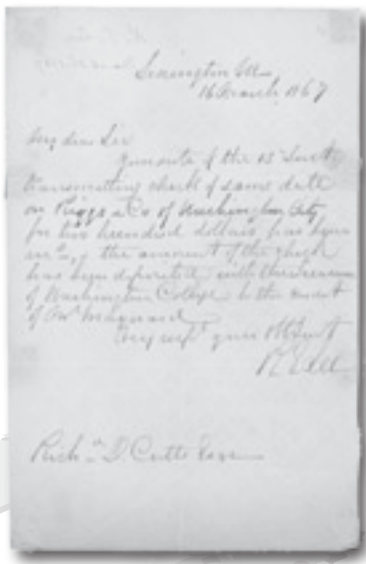 Lexington Va
16 March 1867
My dear Sir
Your note of the 13th Inst:
transmitting check of same date
on Riggs & Co of Washington City
for two hundred dollars, has been
& the amount of the check
has been deposited with the Treasurer
of Washington College to the credit
of Mr Maynard
Very respy your Obt Servt
R E Lee
Richd D. Cutts Esqr